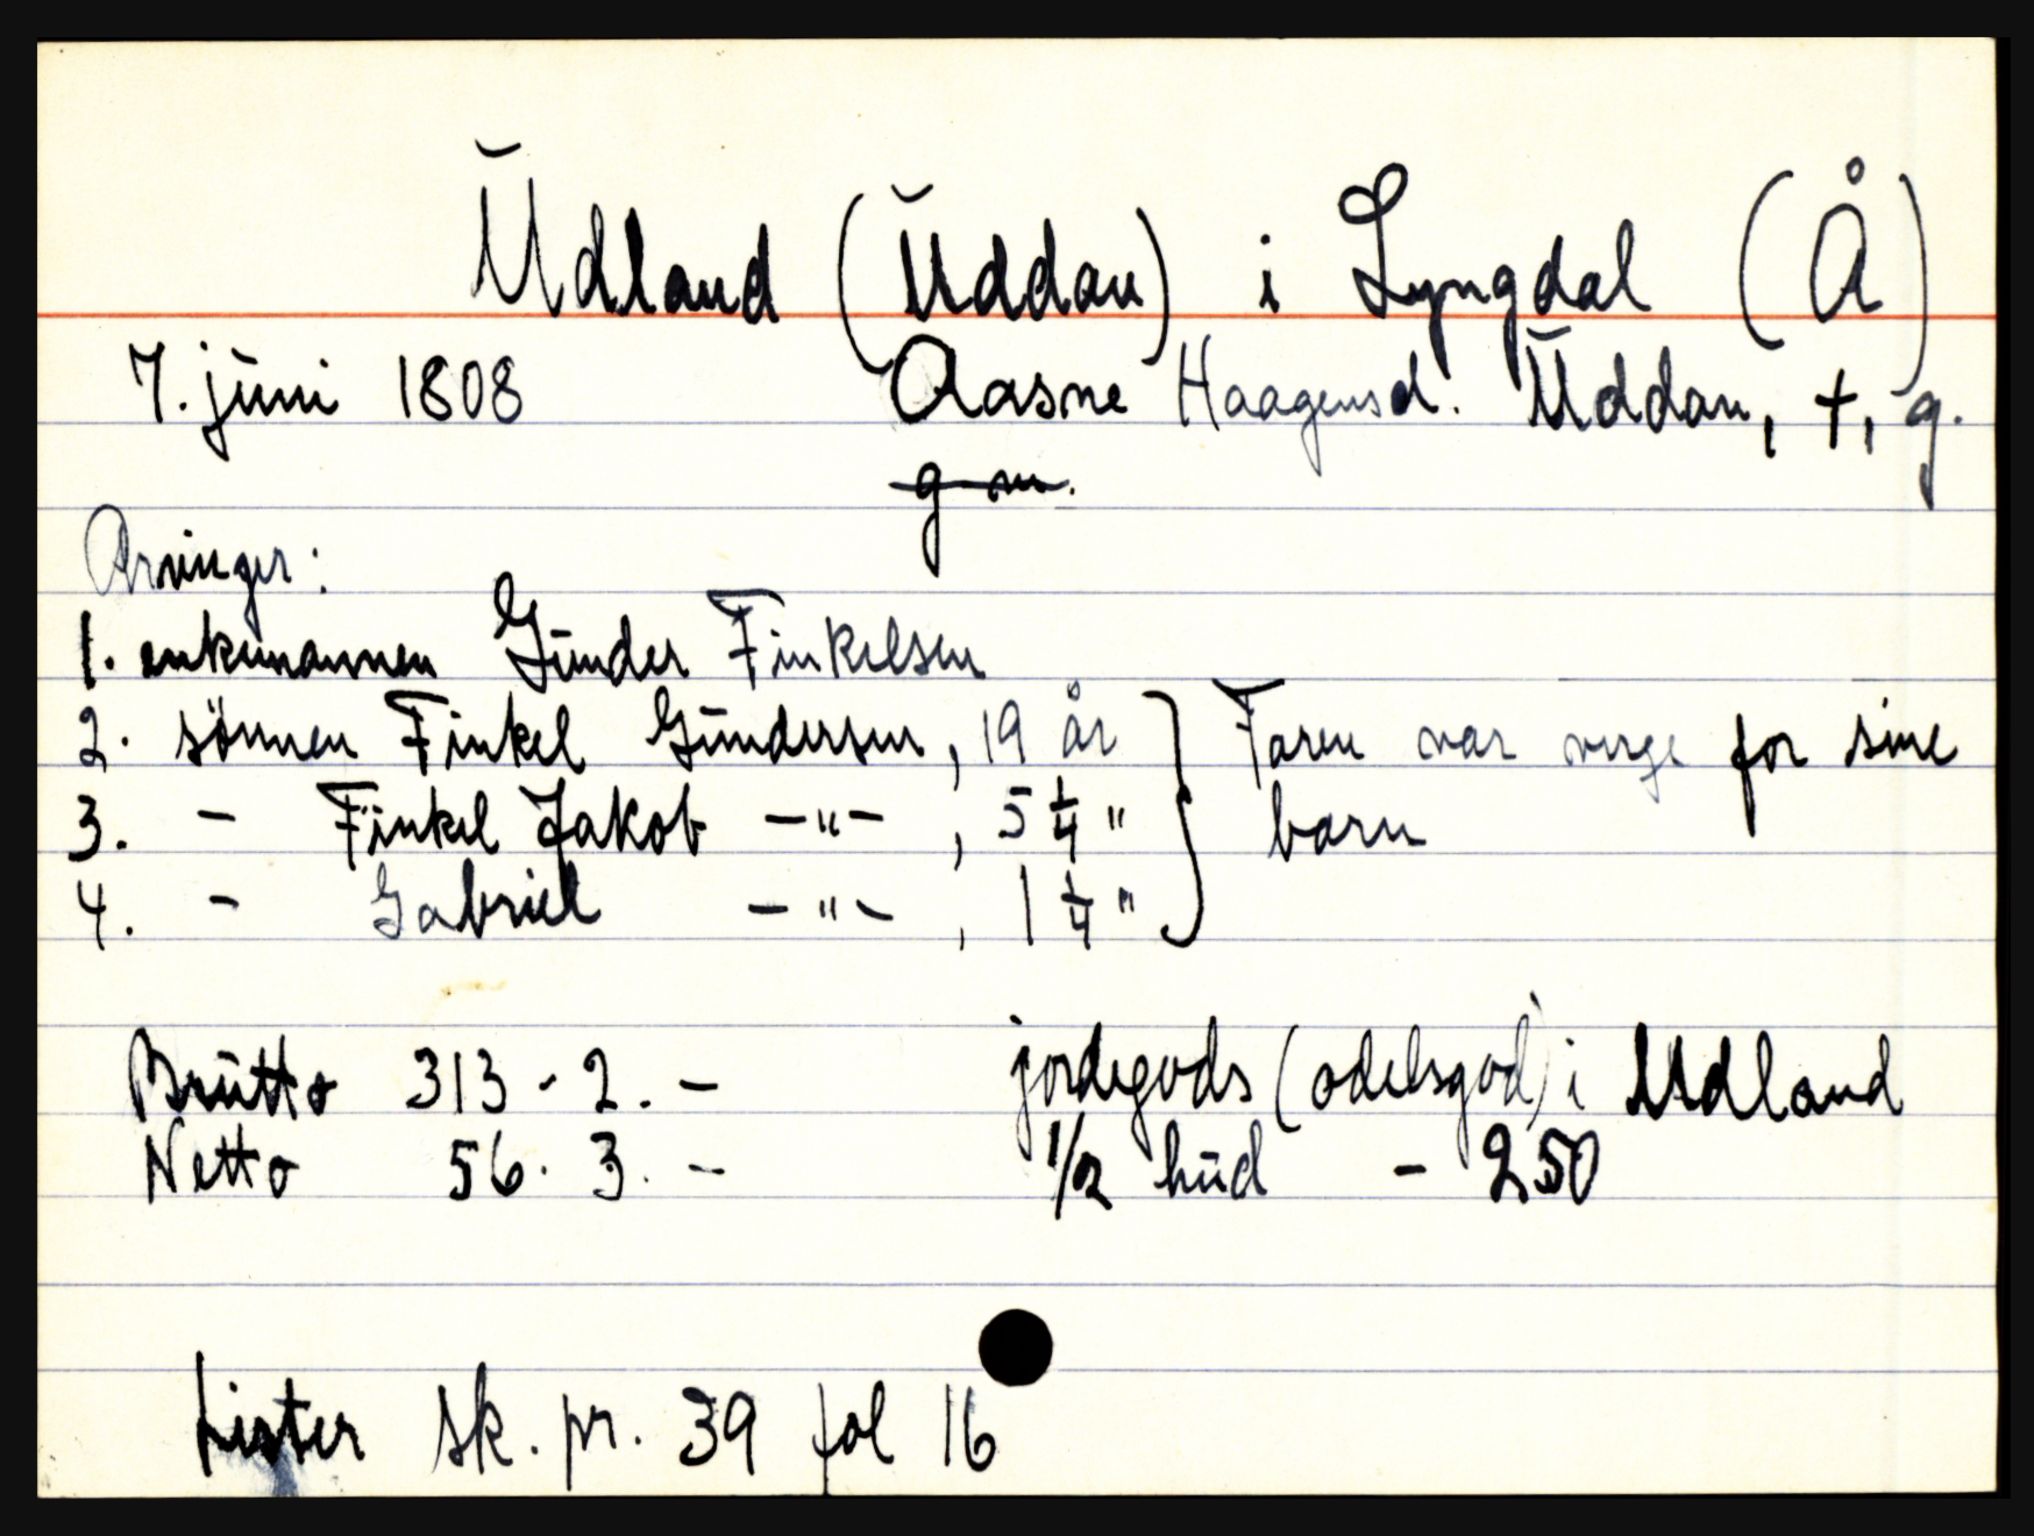 Udland (Uddan) i Lyngdal (Å)
7. juni 1808 Aasne Haagensd. Uddan, †, g.
g m.
Arvinger:
1. enkemannen Gunder Finkelsen
2. sønnen Finkel Gundersen, 19 år } Faren var verge for sine
3. - Finkel Jakob -"-, 5 1/4 " } barn
4. - Gabriel -"-, 1 1/4 " }
Brutto 313 - 2. - jordegods (odelsgod) i Udland
Netto 56. 3. - 1/2 hud - 250
Lister sk. pr. 39 fol 16